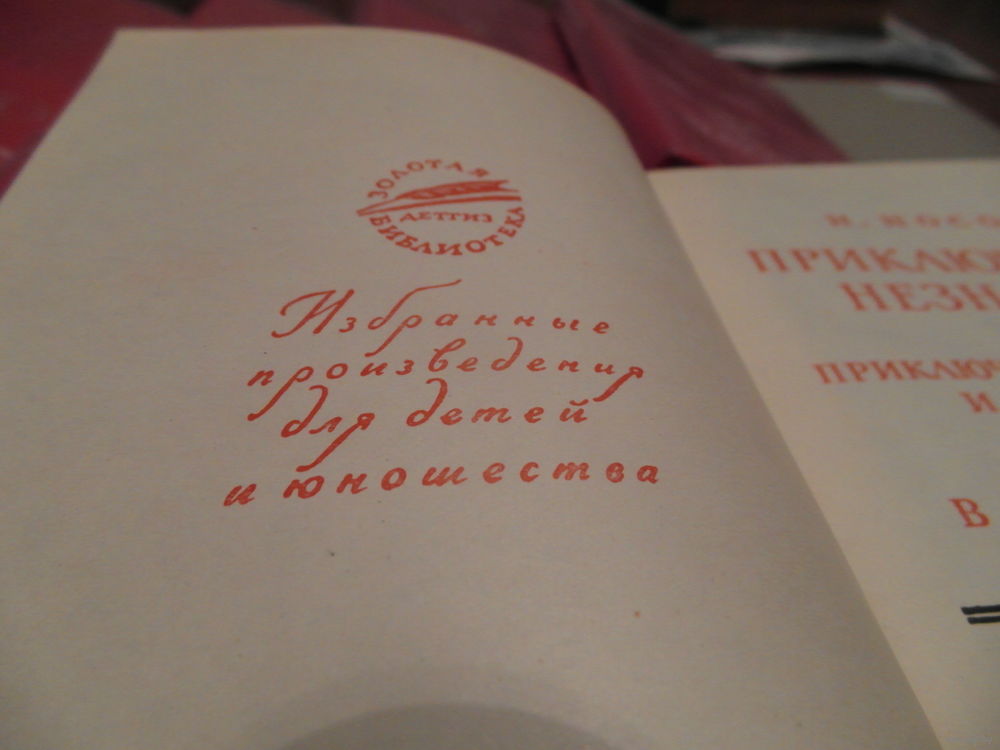 ЗОЛОТАЯ
ДЕТГИЗ
БИБЛИОТЕКА
Избранные
произведения
для детей
и юношества
Н. НОСО
ПРИКЛЮ
НЕЗН
ПРИКЛЮЧ
И
В